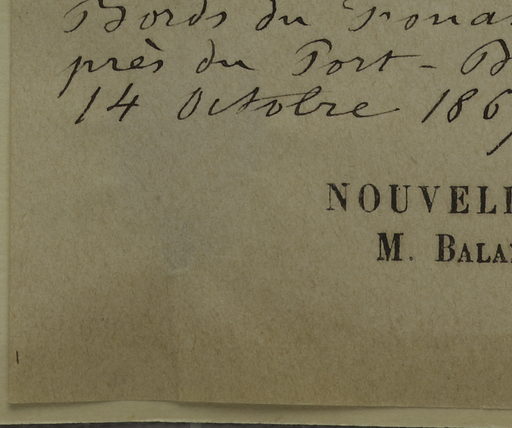 Bords du
près du Port - B
14 Octobre 186
NOUVELL
M. BALA